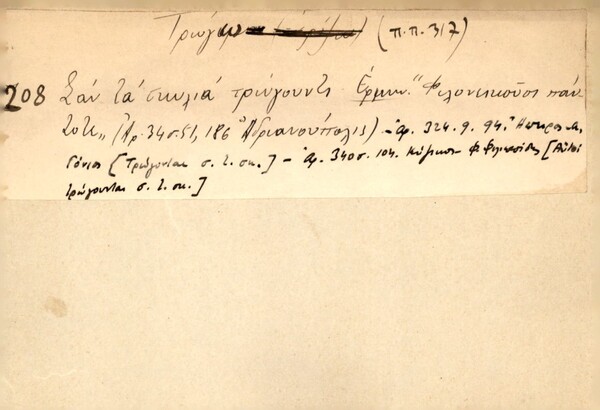 Τρώγω (π.π. 317)
208 Σάν τά σκυλιά τρώγουντι Ερμην. "Φιλονεικοῦσι πάν
τοτε„ (Ἀρ. 34 σ. 51, 186 Ἀδριανούπολις) - ἀρ. 324. 9. 94. Ἤπειρος
[Τρώγονται σ. τ. σκ.] - ἀρ. 340 σ. 104. [Αὐτοί
τρώγονται σ. τ. σκ.]